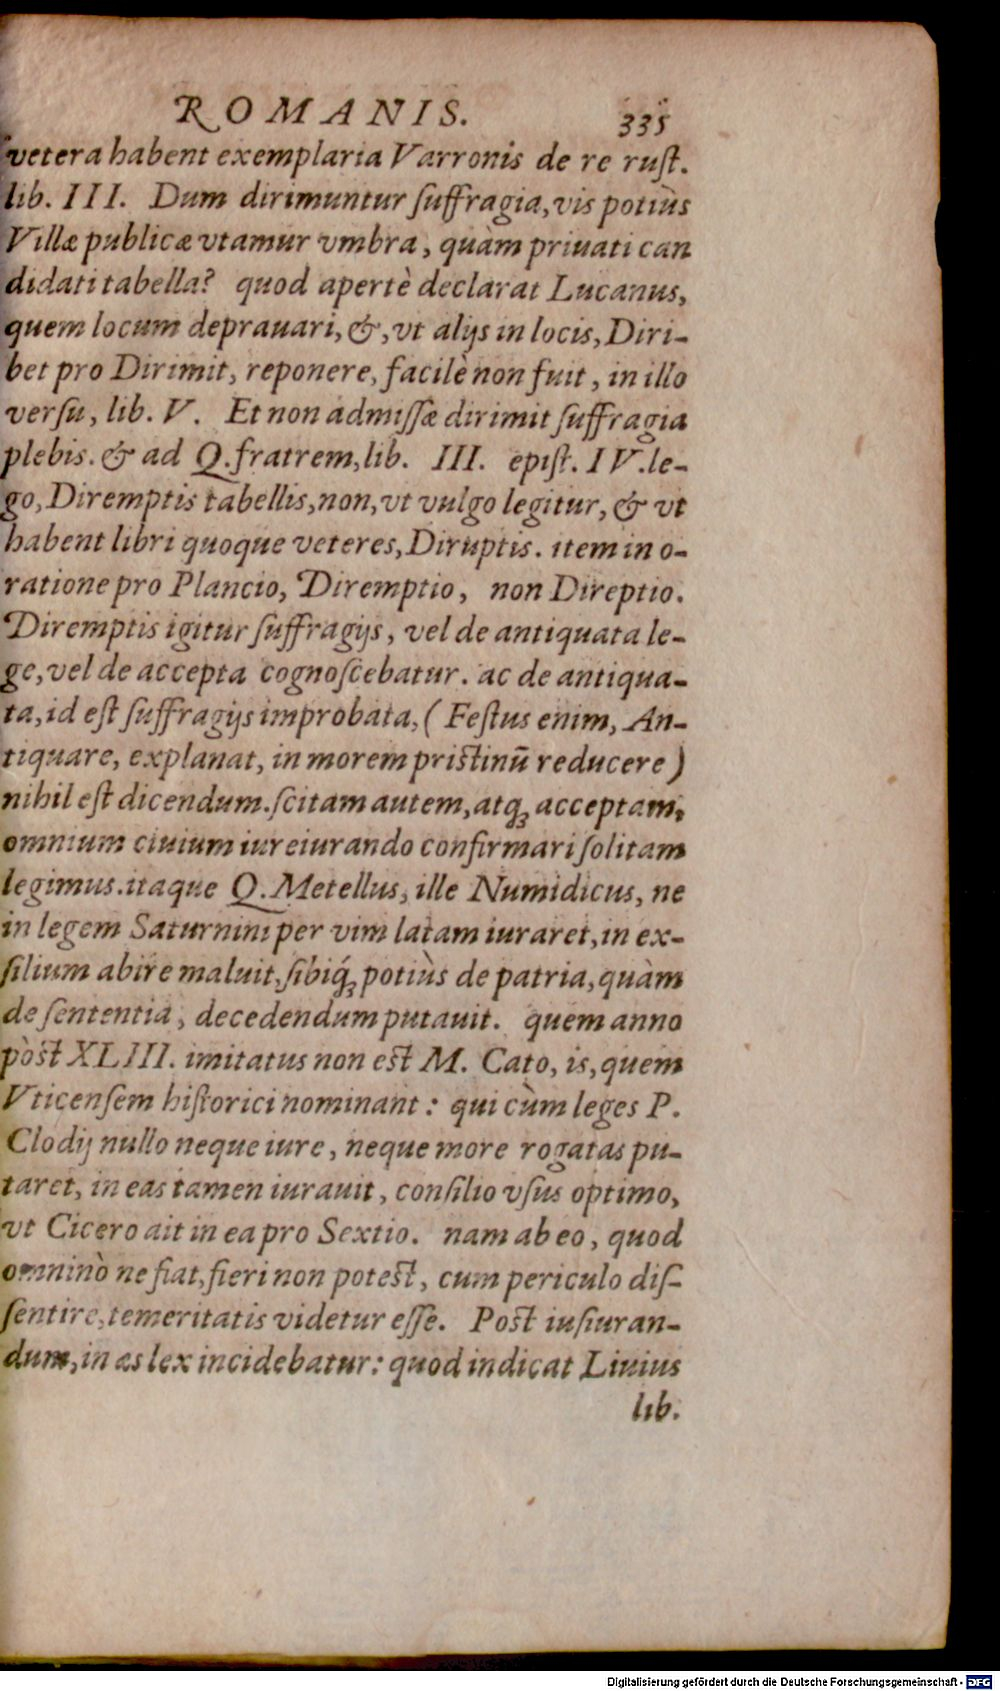 ROMANIS. 335
vetera habent exemplaria Varronis de re rust.
lib. III. Dum dirimuntur suffragia, vis potiùs
Villæ publicæ vtamur vmbra, quàm priuati can
didati tabella? quod apertè declarat Lucanus,
quem locum deprauari, &, vt alijs in locis, Diri-
bet pro Dirimit, reponere, facilè non fuit, in illo
versu, lib. V. Et non admissæ dirimit suffragia
plebis. & ad Q. fratrem, lib. III. epist. IV. le-
go, Diremptis tabellis, non, vt vulgo legitur, & vt
habent libri quoque veteres, Diruptis. item in o-
ratione pro Plancio, Diremptio, non Direptio.
Diremptis igitur suffragijs, vel de antiquata le-
ge, vel de accepta cognoscebatur. ac de antiqua-
ta, id est suffragijs improbata, (Festus enim, An-
tiquare, explanat, in morem pristinū reducere)
nihil est dicendum. scitam autem, atq; acceptam,
omnium ciuium iureiurando confirmari solitam
legimus. itaque Q. Metellus, ille Numidicus, ne
in legem Saturnini per vim latam iuraret, in ex-
silium abire maluit, sibiq́; potiùs de patria, quàm
de sententia, decedendum putauit. quem anno
pòst XLIII. imitatus non est M. Cato, is, quem
Vticensem historici nominant: qui cùm leges P.
Clodij nullo neque iure, neque more rogatas pu-
taret, in eas tamen iurauit, consilio vsus optimo,
vt Cicero ait in ea pro Sextio. nam ab eo, quod
omninò ne fiat, fieri non potest, cum periculo dis-
sentire, temeritatis videtur esse. Post iusiuran-
dum, in æs lex incidebatur: quod indicat Liuius
lib.
Digitalisierung gefördert durch die Deutsche Forschungsgemeinschaft - DFG